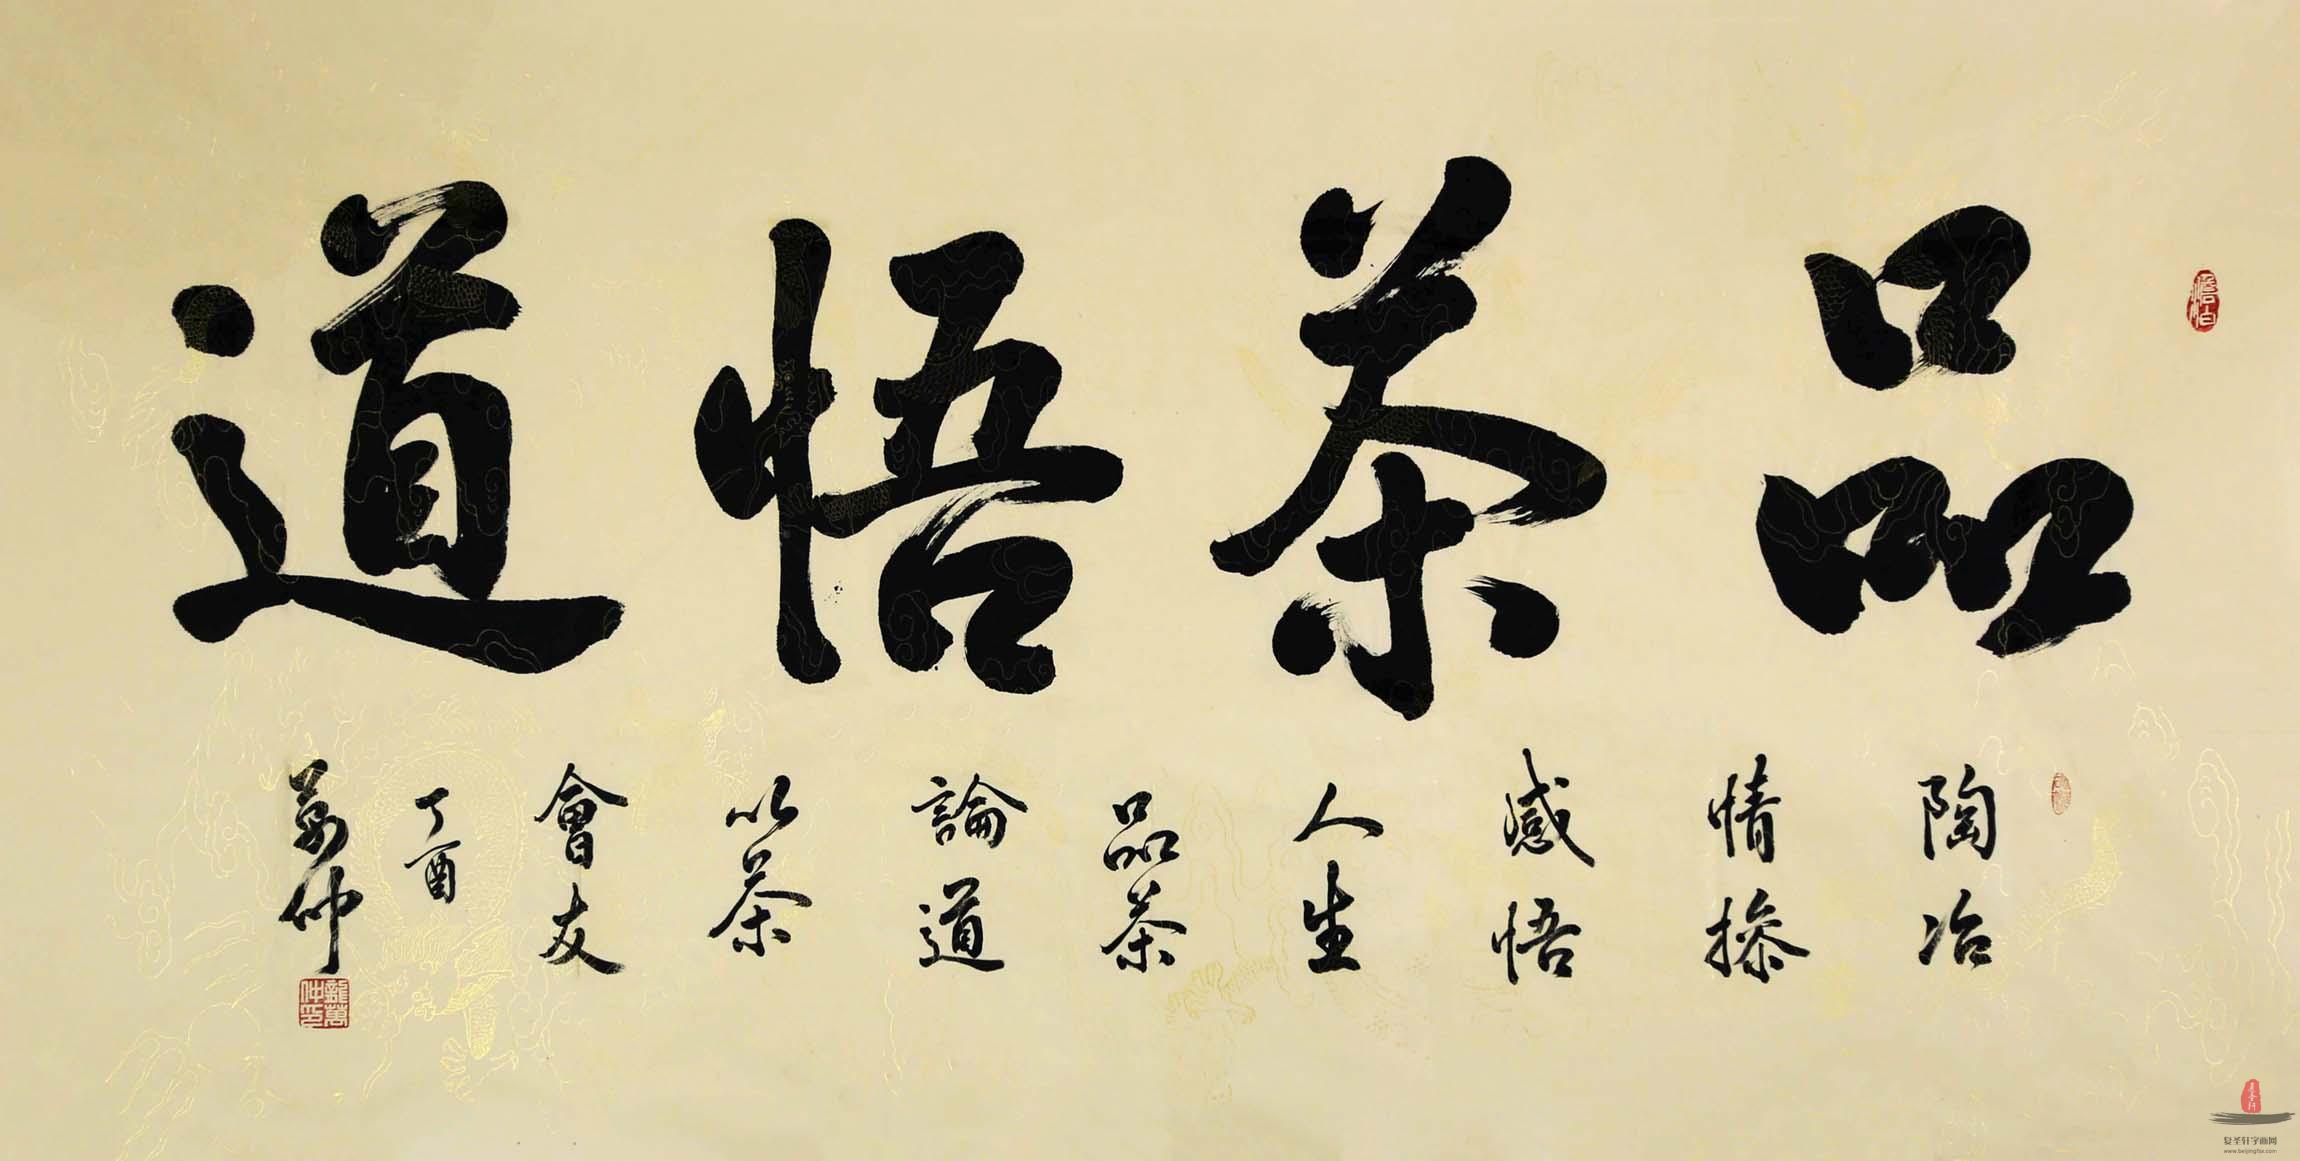 品茶悟道
陶冶
情操
感悟
人生
品茶
論道
以茶
會友
丁酉
萬仲
龍萬仲印
复圣轩字画网
www.beijingfsx.com